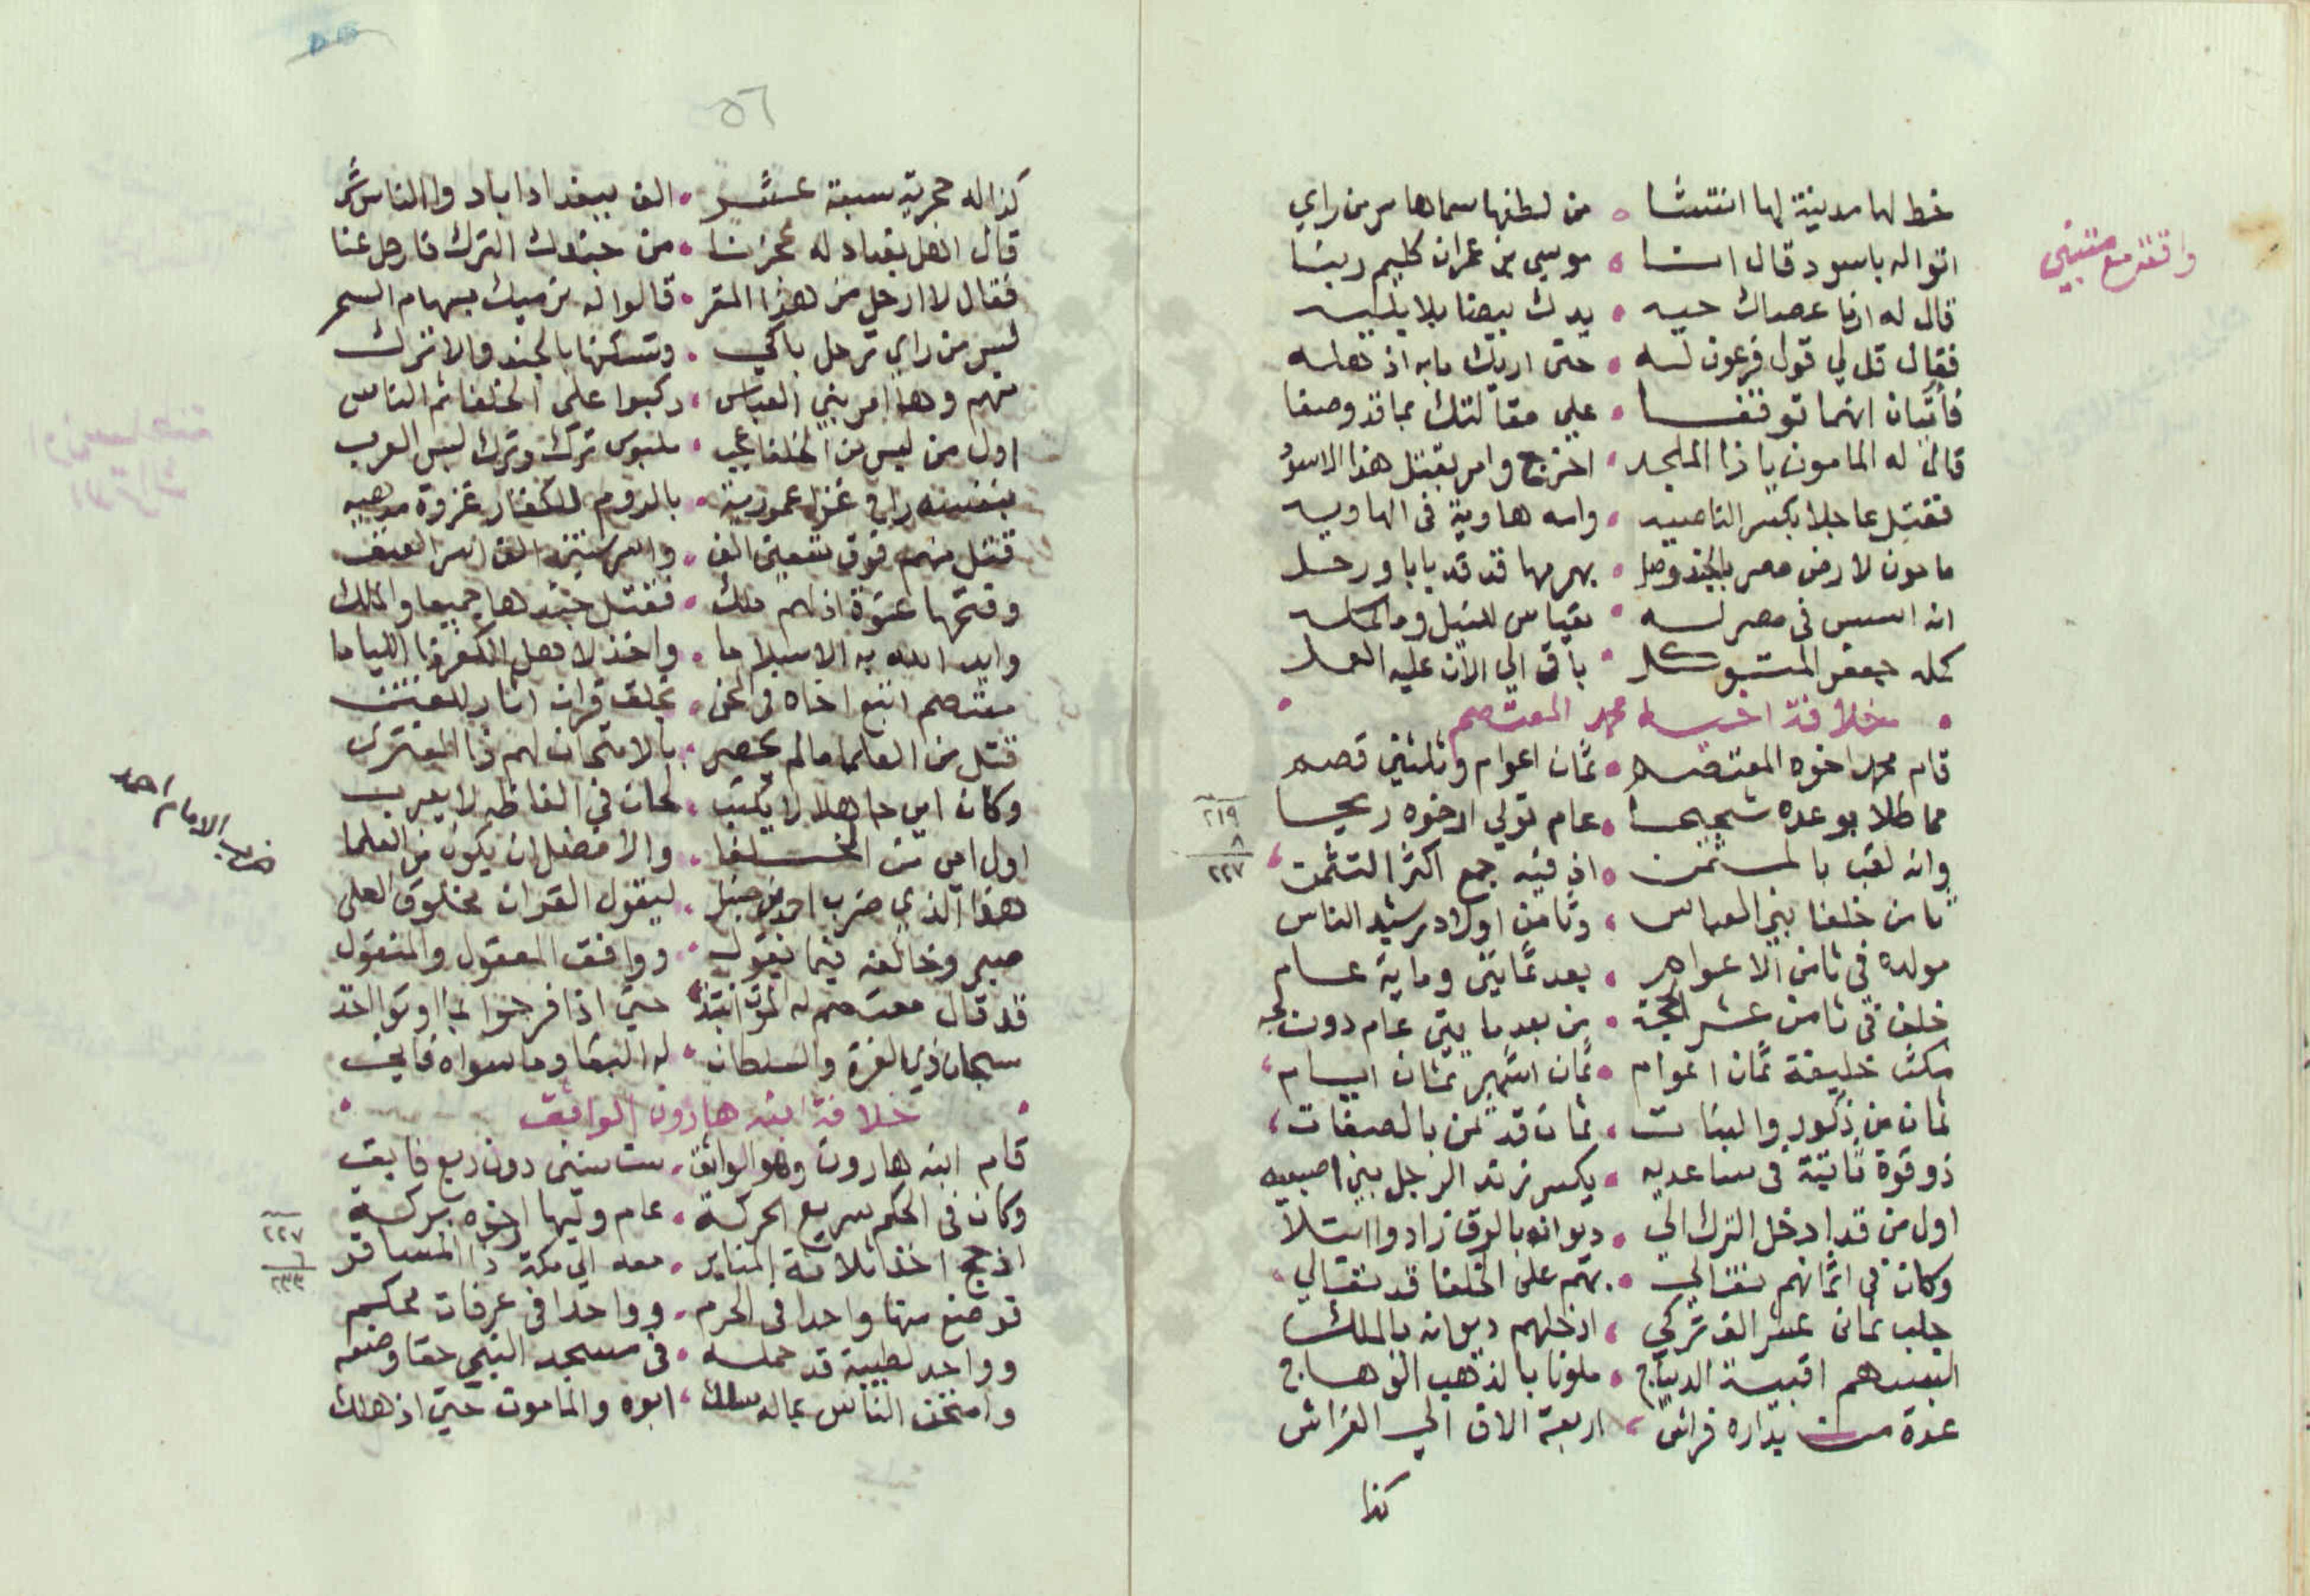 خط لها مدينة لها انتشا • من لطفها سماها سر من راي
واقعة مع متنبي
اتوا له باسود قال انا • موسى بن عمران كليم ربنا
قال له ارنا عصاك حيه • يدك بيضا بلا
فقال قل لي قول فرعون لـه • حتى اريك ما به اذهله
على مقالتك بما قد وصفا
قال له المامون يا ذا الملحد • اخرج وامر بقتل هذا الاسود
فقتل عاجلا بكسر الناصيه • وامه هاوية في الهاويه
مامون لارض مصر بالجند وصل • بهرمها قد قد بابا ورحل
انه اسس في مصر له • مقياس للنيل وما
كمله جعفر المتوكل • باق الي الان عليه العمل
• خلافة اخيه محمد المعتصم •
قام محمد اخوه المعتصم • ثمان اعوام وثلثين قصم
مماطلا بوعده شحيحا • عام تولي ارخوه ريحا
٢١٩
٨
٢٢٧
وانه لقب بالمثمن • اذ فيه جمع اكثر التثمن
ثامن خلفا بني العباس • وثامن اولاد رشيد الناس
مولده في ثامن الاعوام • بعد ثمانين وماية عام
خلف في ثامن عشر الحجة • من بعد مايتي عام دون
مكث خليفة ثمان اعوام • ثمان اشهر ثمان ايام
ثمان من ذكور والبنات • ثمان قد ثمن بالصفات
ذو قوة ثابتة في ساعديه • يكسر زند الرجل بين اصبعيه
اول من قد ادخل الترك الي • ديوانه بالرق زادوا ابتلا
وكان في اثمانهم تغالي • بهم على الخلفا قد تعالي
جلب ثمان عشر الف تركي • ادخلهم ديوانه بالملك
البسهم اقبية الديباج • ملونا بالذهب الوهاج
عدة من بداره فراش • اربعة الاف الي الفراش
كذا
٥٦
كذا له حجرية سبعة عشر • الف ببغداد اباد واالناس شر
قال اهل بغداد له عجزنا • من جندك الترك فارحل عنا
فقال لا ارحل من هذا المقر • قالوا له نرميك بسهام السحر
لسر من راي ترحل باكي • وتسكنها بالجند والاتراك
منهم وها امر بني العباس • ركبوا على الخلفا ثم الناس
اول من ليس من الخلفا • ملبوس ترك وترك لبس العرب
بنفسه راي غزا عمورية • بالروم للكفار غزوة مرهبه
قتل منهم فوق تسعين الف • واسر ستين الف اسر العنف
وفتحها عنوة اذ لهم ملك • فقتل جندها جميعا والملك
وايد الله به الاسلاما • واخذ لاهل الكفر
معتصم اتبع اخاه في المحن • بخلق قران اثار للفتن
قتل من العلما ما لم يحصر • بالامتحان لهم ذا المفتري
وكان امي جاهلا لا يكتب • لحان في الفاظه لا يعرب
اول امي من الخلفا • والافضل ان يكون من العلما
ضرب الامام احمد
هذا الذي ضرب احمد بن حنبل • ليقول القران مخلوق العلي
صبر وخالفه فيما يقول • ووافق المعقول والمنقول
قد قال معتصم له الموت • حتى اذا فرحوا بما اوتوا اخذ
سبحان ذي العزة والسلطان • له البقا وما سواه فاني
• خلافة ابنه هارون الواثق •
قام ابنه هارون وهو الواثق • ست سنين دون ربع فايق
وكان في الحكم سريع الحركة • عام وليها ارخوه بركة
٢٢٧
٦
٢٣٣
اذ حج اخذ ثلاثة المنابر • معه الي مكة ذا المسافر
توضع منها واحدا في الحرم • وواحدا في عرفات محكم
وواحد لطيبة قد حمله • في مسجد النبي حقا وضعه
وامتحن الناس بما له سلك • ابوه والمامون حتى اذ هلك